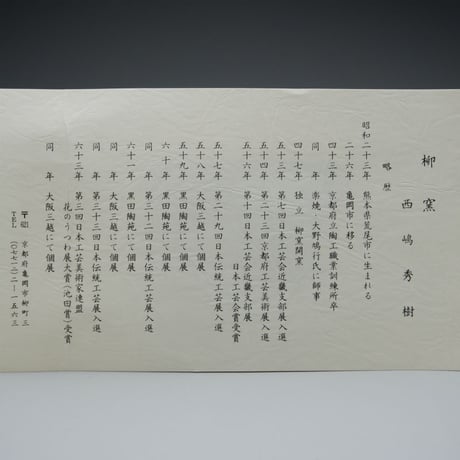 柳窯 西嶋秀樹
略歴
昭和二十三年 熊本県荒尾市に生まれる
二十六年 亀岡市に移る
四十三年 京都府立陶工職業訓練所卒
同年 楽焼・大野鳩行氏に師事
四十七年 独立 柳窯開窯
五十三年 第七回日本工芸会近畿支部展入選
五十四年 第二十三回京都府工芸美術展入選
五十六年 第十回日本工芸会近畿支部展
日本工芸会賞受賞
五十七年 第二十九回日本伝統工芸展入選
五十八年 大阪三越にて個展
五十九年 黒田陶苑にて個展
六十年 黒田陶苑にて個展
同年 第三十二回日本伝統工芸展入選
六十一年 黒田陶苑にて個展
同年 大阪三越にて個展
同年 第三十三回日本伝統工芸展入選
六十三年 第三回日本工芸美術家連盟
花のうつわ展大賞(池田賞)受賞
同年 大阪三越にて個展
〒621 京都府亀岡市柳町三
TEL (〇七七一)二二-一五六三